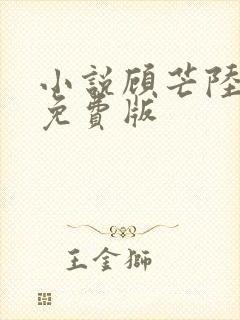 小說顧芒陸
免費版
王金獅